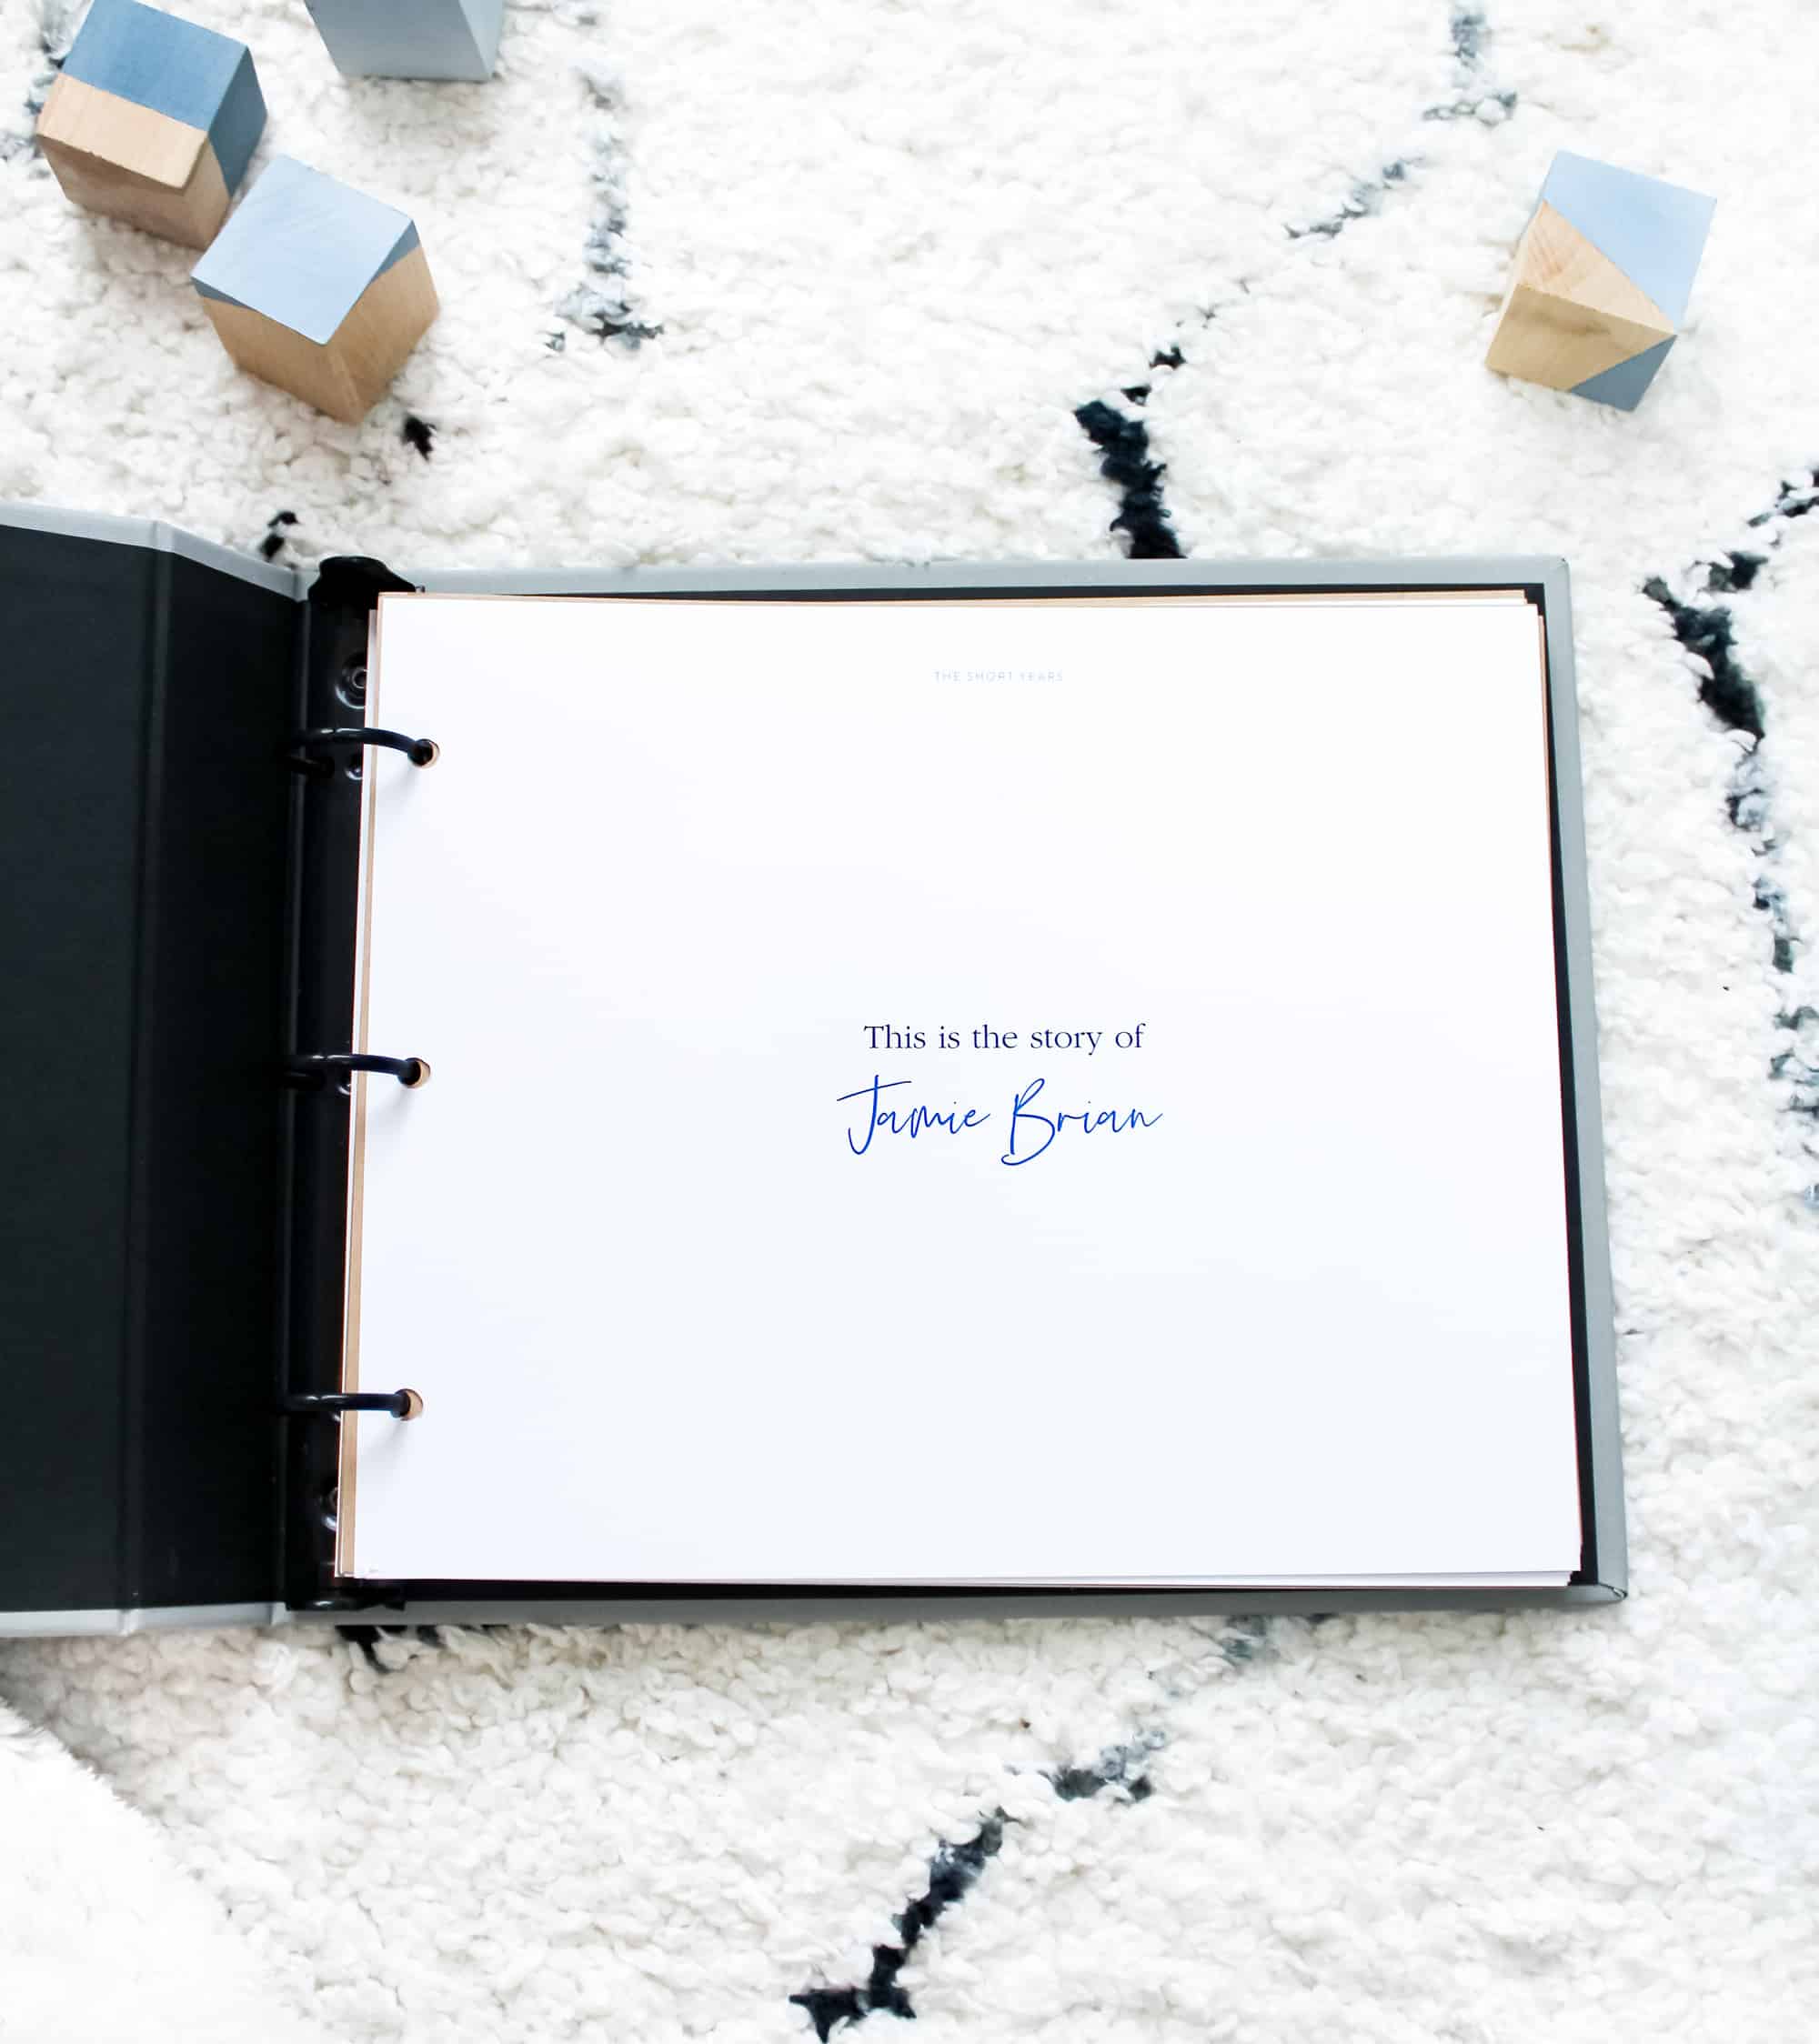 THE SHORT YEARS
This is the story of
Jamie Brian